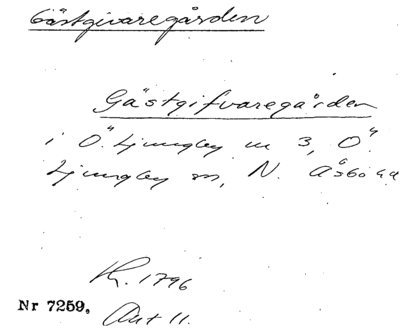 Gästgivaregården
Gästgifvaregården
i Ö. Ljungby nr 3, Ö.
Ljungby sn, N. Åsbo hd
Kr. 1796
Nr 7259, Akt 11.